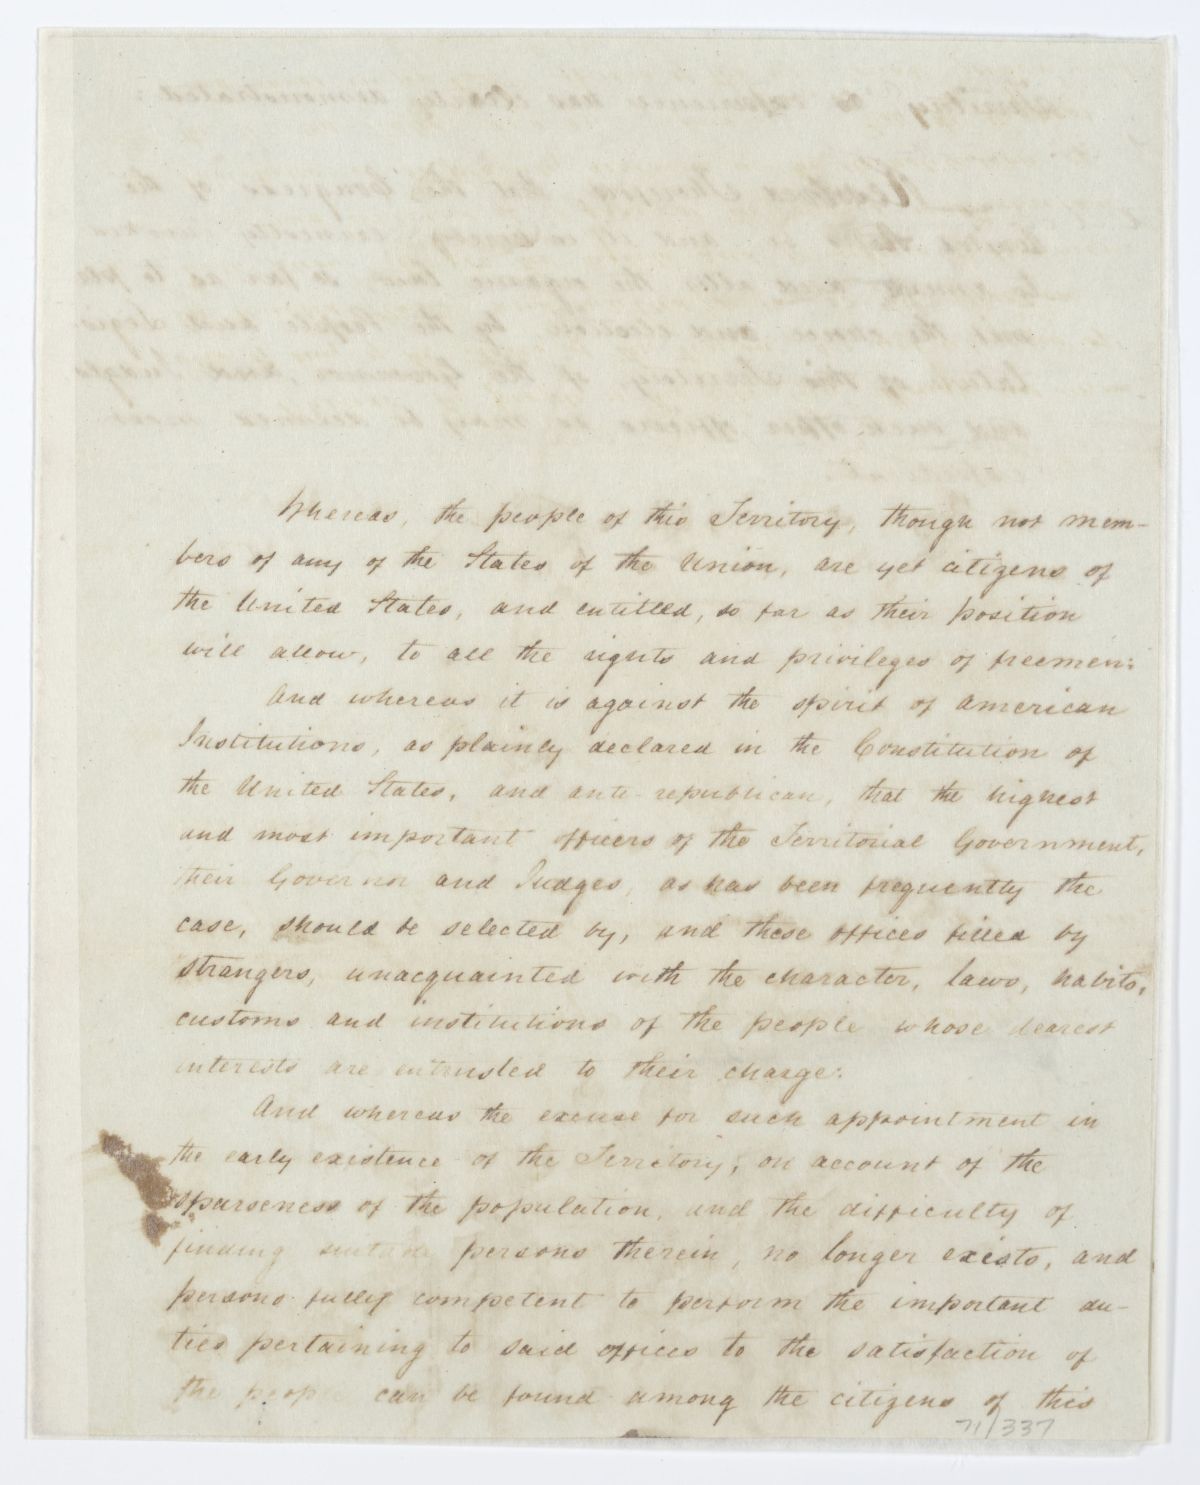 Whereas, the people of this Territory, though not mem-
bers of any of the States of the Union, are yet citizens of
the United States, and entitled, so far as their position
will allow, to all the rights and privileges of freemen:
And whereas it is against the spirit of American
Institutions, as plainly declared in the Constitution of
the United States, and anti-republican, that the highest
and most important officers of the Territorial Government,
their Governor and Judges, as has been frequently the
case, should be selected by, and these offices filled by
strangers, unacquainted with the character, laws, habits,
customs and institutions of the people whose dearest
interests are entrusted to their charge:
And whereas the excuse for such appointment in
the early existence of the Territory, on account of the
sparseness of the population, and the difficulty of
finding suitable persons therein, no longer exists, and
persons fully competent to perform the important du-
ties pertaining to said offices to the satisfaction of
the people can be found among the citizens of this
71/337